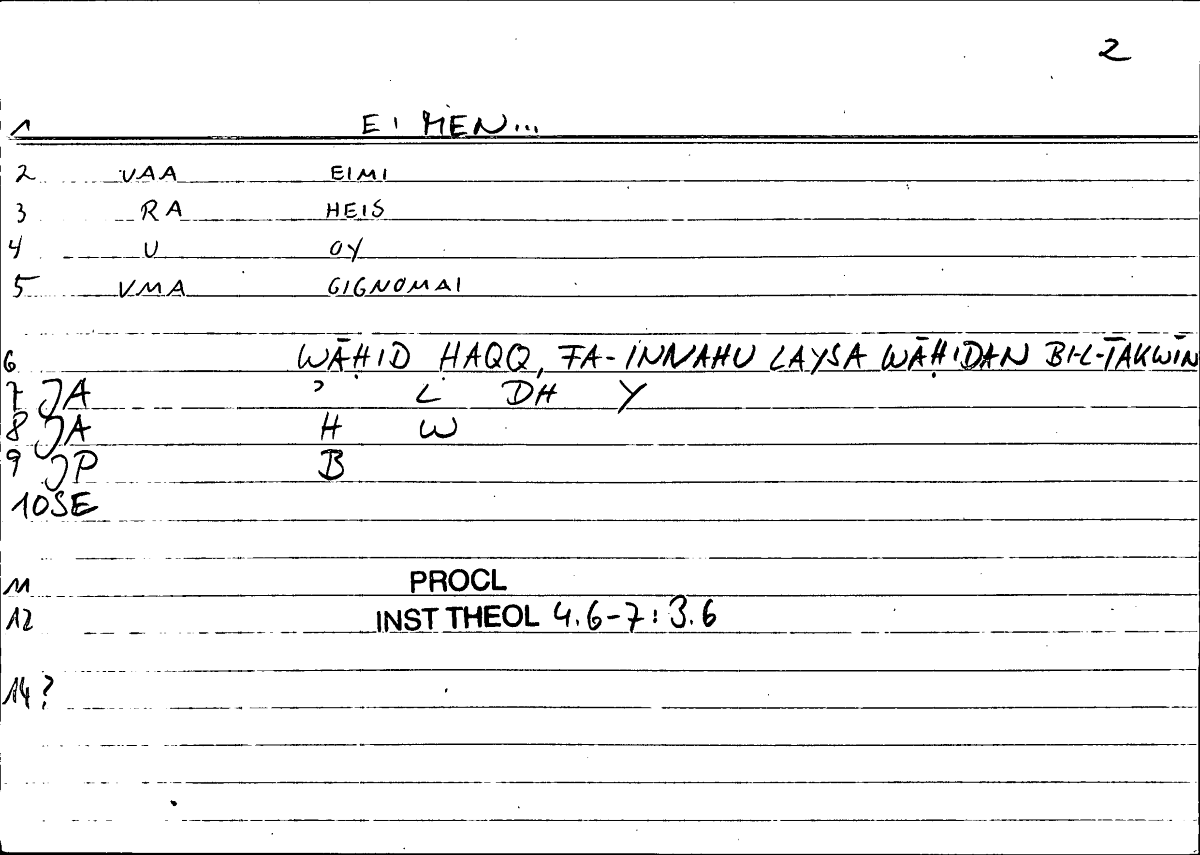 2
1 EI MEN...
2 VAA EIMI
3 RA HEIS
4 U OY
5 VMA GIGNOMAI
6 WĀḤID ḤAQQ, FA-INNAHU LAYSA WĀḤIDAN BI-L-TAKWĪN
7 JA ʾ L DH Y
8 JA H W
9 JP B
10 SE
11 PROCL
12 INST THEOL 4.6-7:3.6
14?